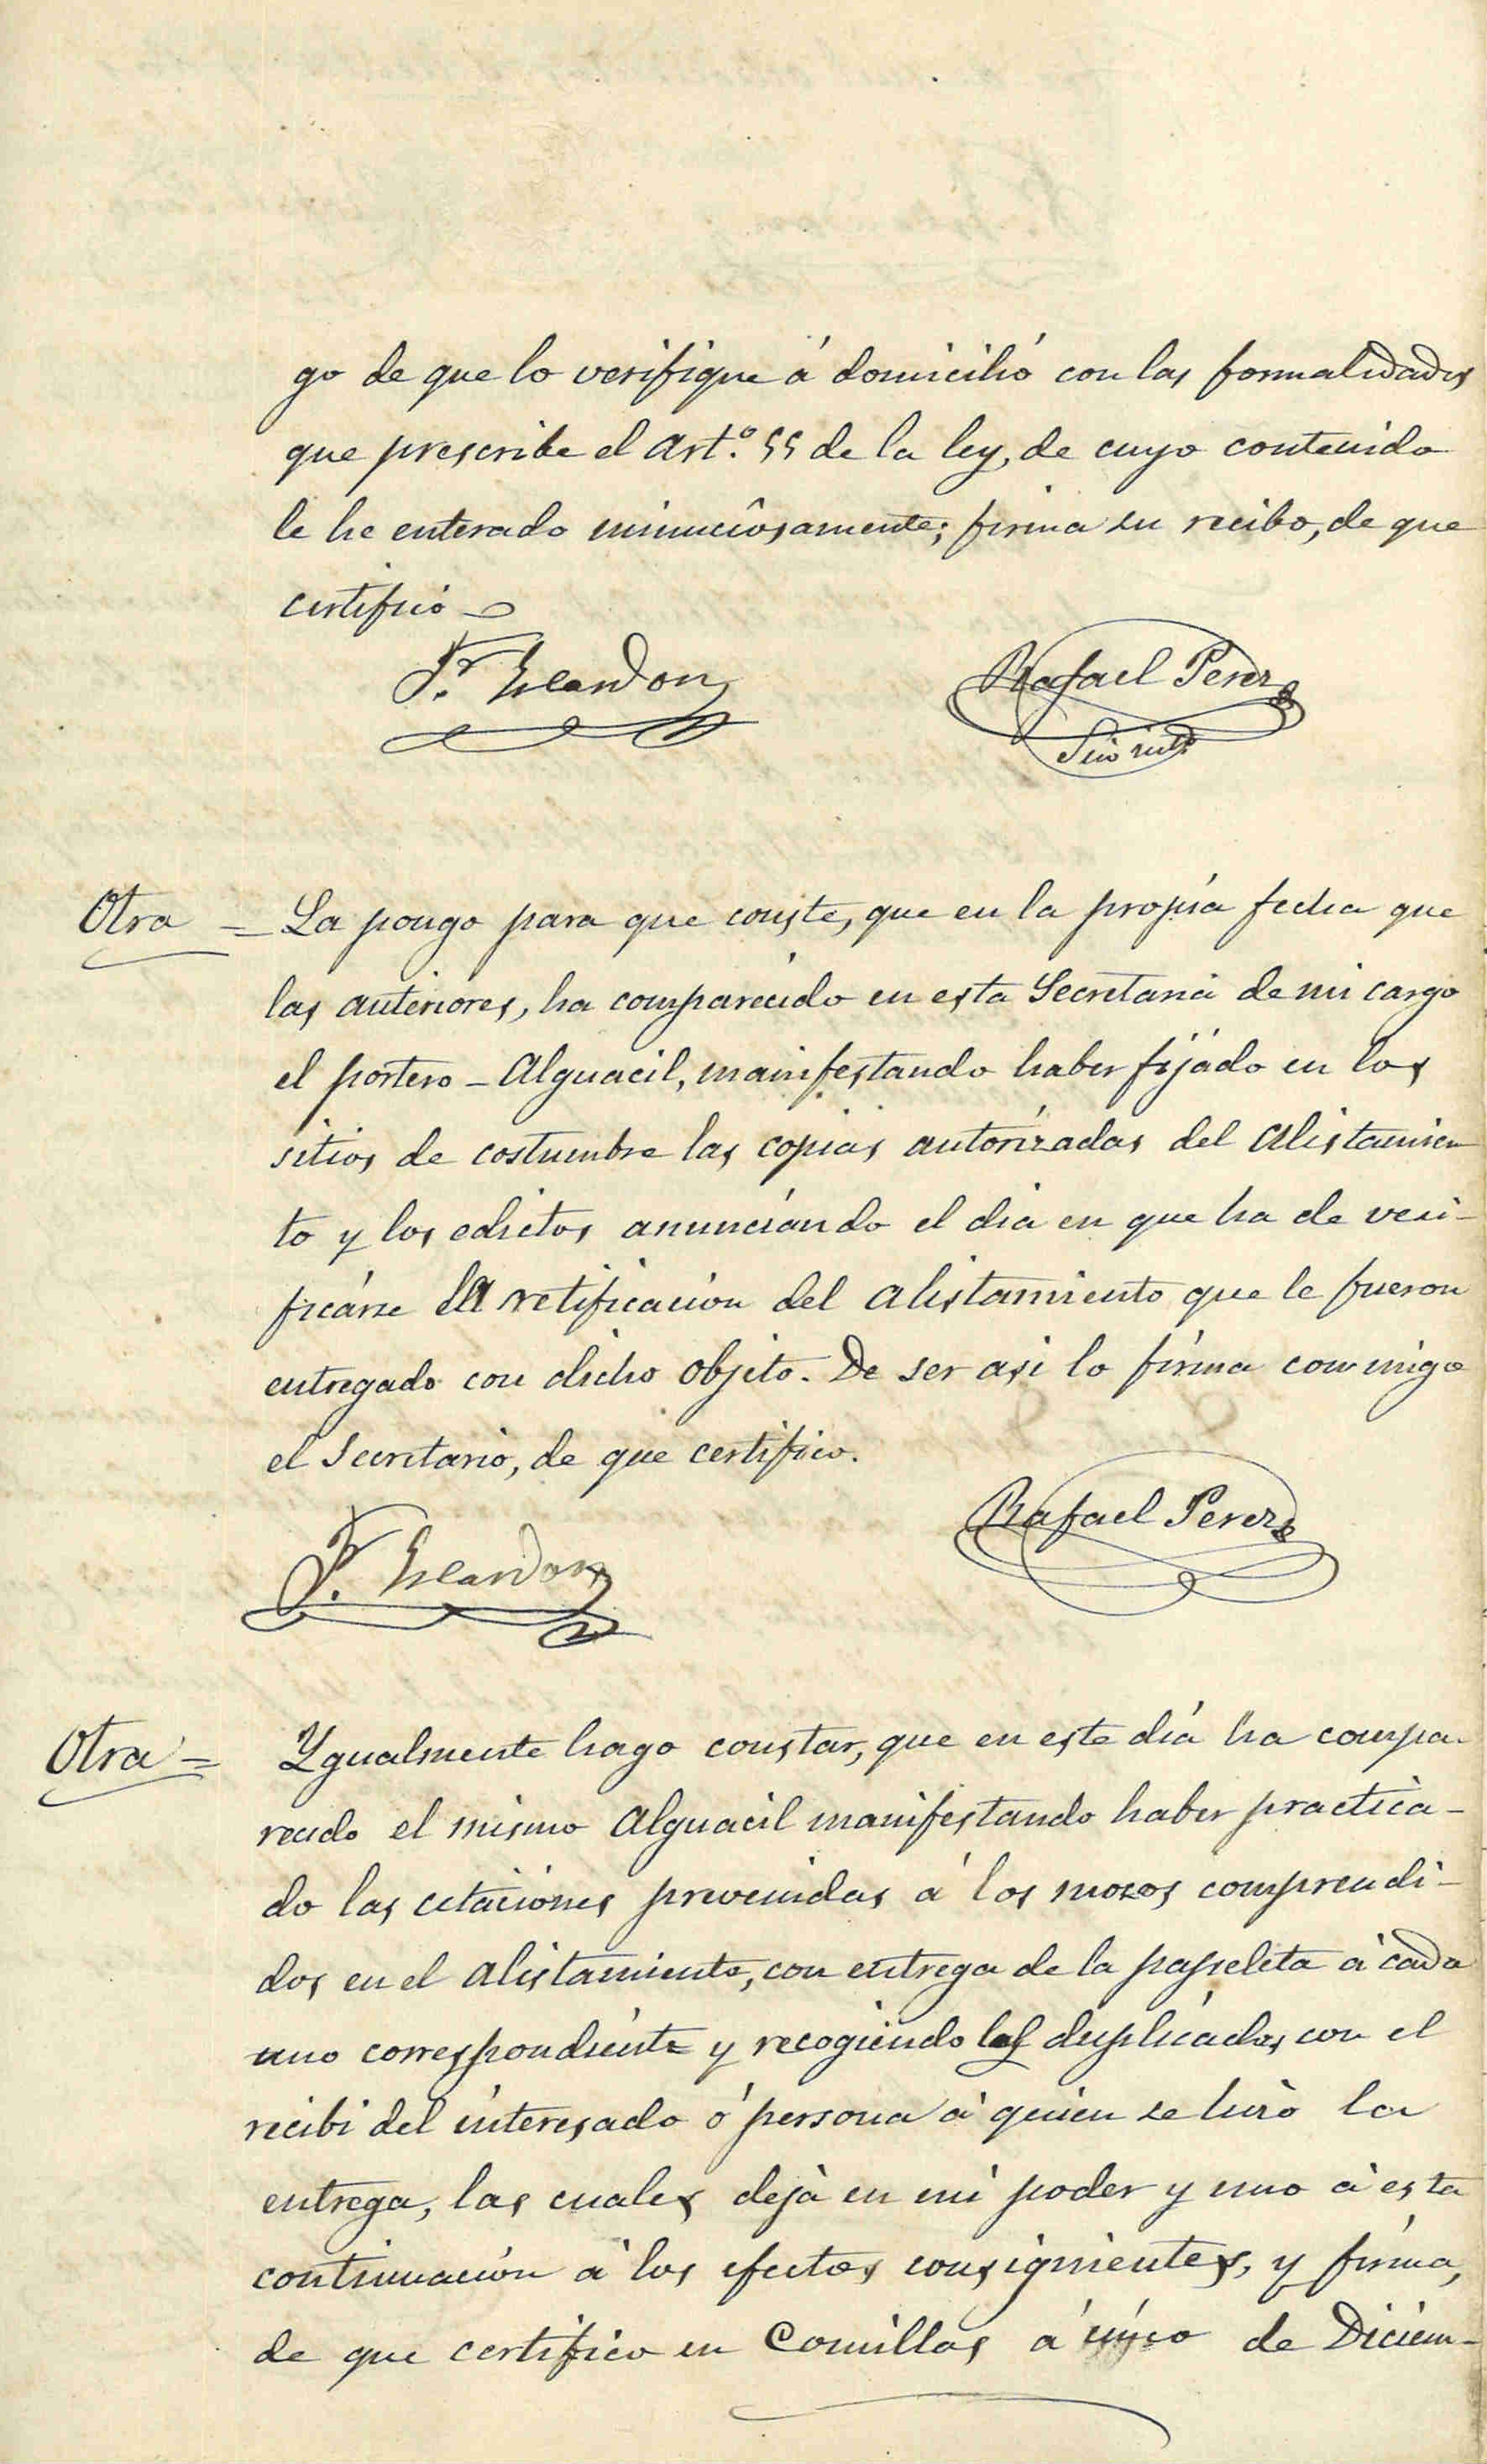 go de que lo verifique á domicilió con las formalidades
que prescribe el Art.º 55 de la ley, de cuyo contenido
le he enterado minuciosamente; firma su recibo, de que
certificó
Rafael Perez
Otra = La pongo para que conste, que en la propia fecha que
las anteriores, ha comparecido en esta Secretaria de mi cargo
el portero - Alguacil, manifestando haber fijado en los
sitios de costumbre las copias autorizadas del Alistamien
to y los edictos anunciando el dia en que ha de veri-
ficarse la retificacion del alistamiento que le fueron
entregado con dicho objeto. De ser asi lo firma con migo
el Secretario, de que certifico.
Rafael Perez
Otra = Ygualmente hago constar, que en este día ha compa-
recido el mismo Alguacil manifestando haber practica-
do las citaciones prevenidas á los mozos comprendi-
dos en el alistamiento, con entrega de la papeleta á cada
uno correspondiente y recogiendo las duplicadas con el
recibi del interesado ó persona á quien se hizo la
entrega, las cuales deja en mi poder y uno á esta
continuación á los efectos consiguientes, y firma,
de que certifico en Comillas á cinco de Diciem-